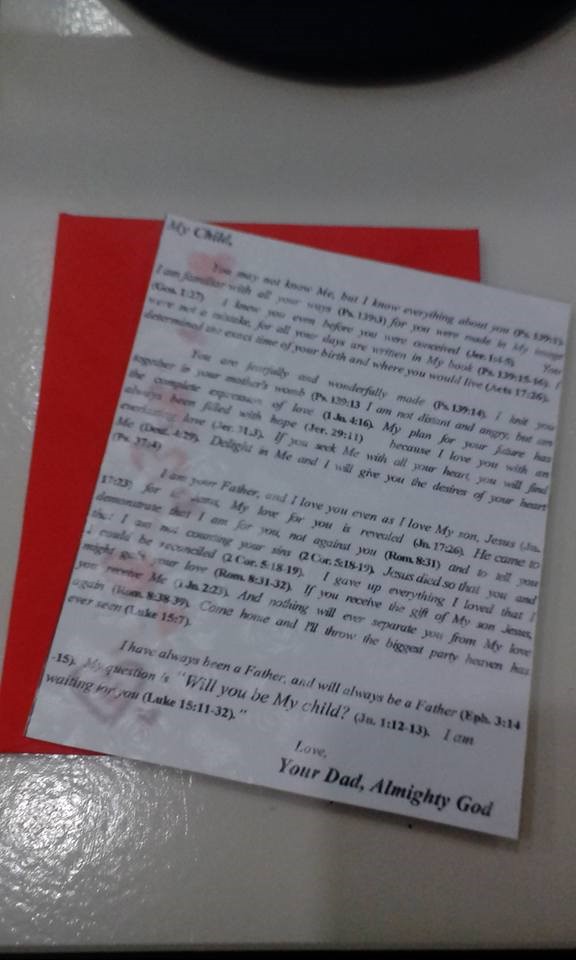 My Child,
You may not know Me, but I know everything about you (Ps. 139:1).
I am familiar with all your ways (Ps. 139:3) for you were made in My image
(Gen. 1:27). I know you even before you were conceived (Jer. 1:4-5). You
were not a mistake, for all your days are written in My book (Ps. 139:15-16). I
determined the exact time of your birth and where you would live (Acts 17:26).
You are fearfully and wonderfully made (Ps. 139:14). I knit you
together in your mother's womb (Ps. 139:13 I am not distant and angry, but am
the complete expression of love (1 Jn. 4:16). My plan for your future has
always been filled with hope (Jer. 29:11) because I love you with an
everlasting love (Jer. 31:3). If you seek Me with all your heart, you will find
Me (Deut. 4:29). Delight in Me and I will give you the desires of your heart
(Ps. 37:4)
I am your Father, and I love you even as I love My son, Jesus (Jn.
17:23) for in Jesus, My love for you is revealed (Jn. 17:26). He came to
demonstrate that I am for you, not against you (Rom. 8:31) and to tell you
that I am not counting your sins (2 Cor. 5:18-19). Jesus died so that you and
I could be reconciled (2 Cor. 5:18-19). I gave up everything I loved that I
might gain your love (Rom. 8:31-32). If you receive the gift of My son Jesus,
you receive Me (1 Jn. 2:23). And nothing will ever separate you from My love
again (Rom. 8:38-39). Come home and I'll throw the biggest party heaven has
ever seen (Luke 15:7).
I have always been a Father, and will always be a Father (Eph. 3:14
-15). My question is "Will you be My child? (Jn. 1:12-13). I am
waiting for you (Luke 15:11-32)."
Love,
Your Dad, Almighty God